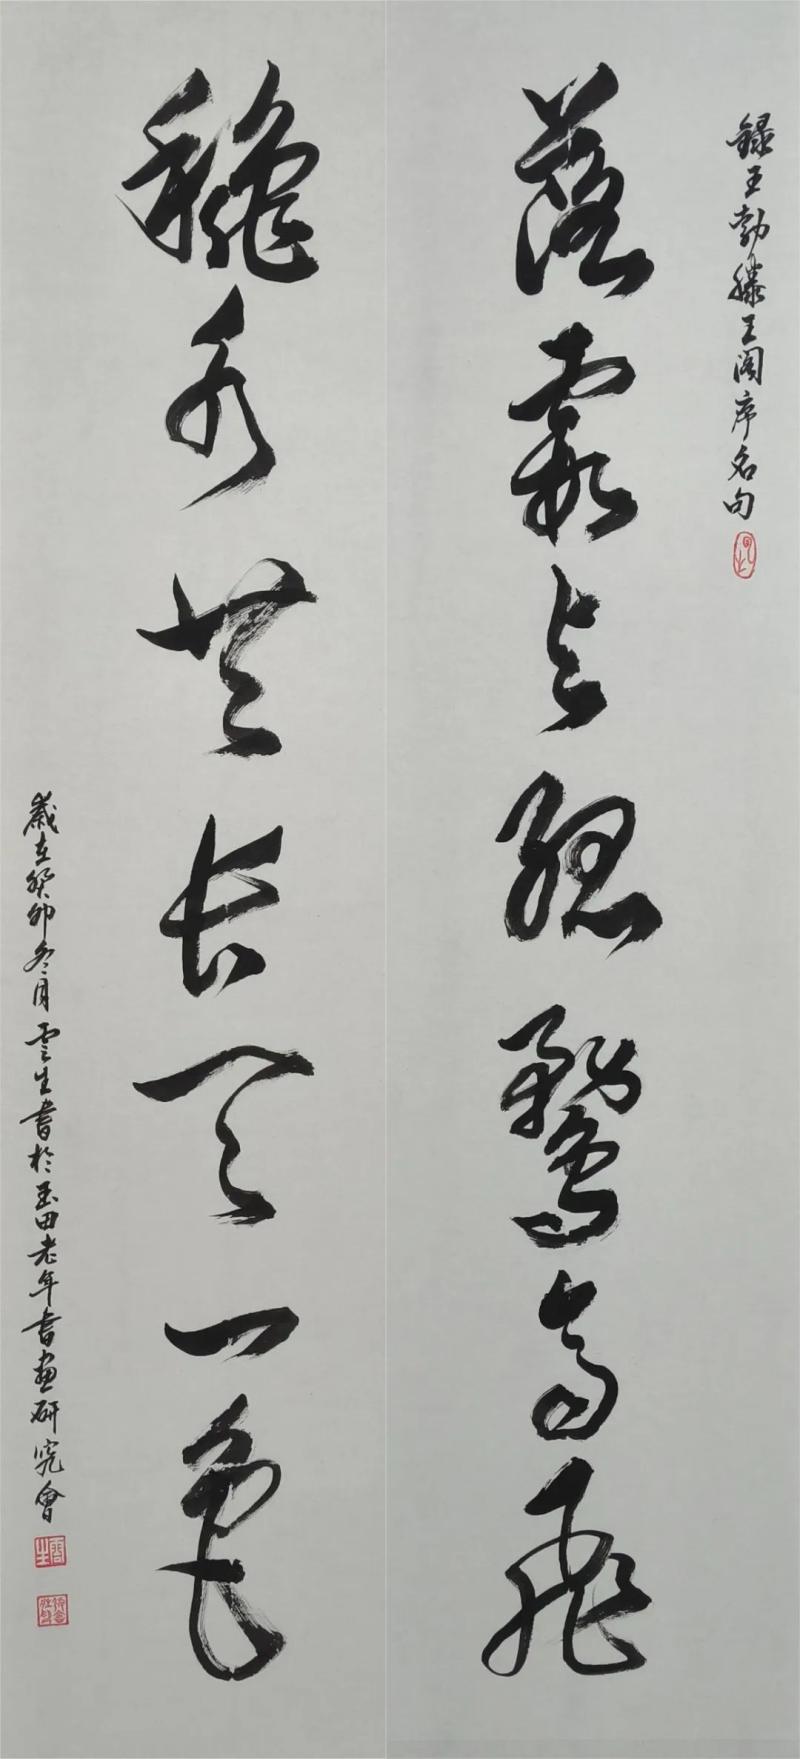 録王勃滕王阁序名句
落霞与孤鹜齐飞
穐水共长天一色
歲在癸卯冬月雲生書於玉田老年書画研究會